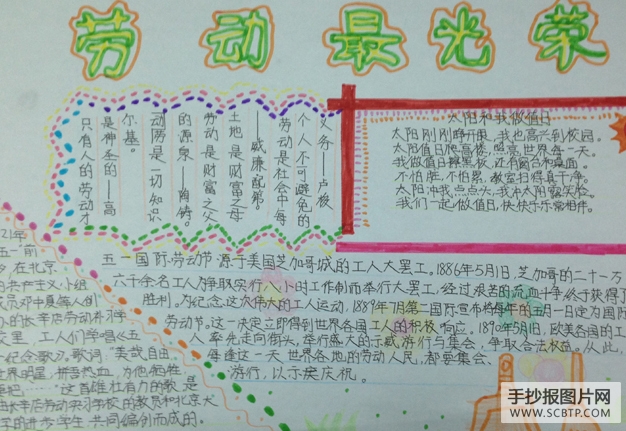 劳动最光荣
只有人的劳动才
是神圣的——高
尔基。
动是一切知识
的源泉——陶铸。
劳动是财富之父
土地是财富之母
——威廉配第。
劳动是社会中每
个人不可避免的
义务——卢梭
太阳和我做值日
太阳刚刚睁开眼,我也高兴到校园。
太阳值日爬高楼,照亮世界每一天。
我做值日擦黑板,还有窗台和桌面。
不怕脏,不怕累,教室扫得真干净。
太阳冲我点点头,我冲太阳露笑脸。
我们一起做值日,快快乐乐常相伴。
五一国际劳动节源于美国芝加哥城的工人大罢工。1886年5月1日,芝加哥的二十一万
六千余名工人为争取实行八小时工作制而举行大罢工,经过艰苦的流血斗争终于获得了
胜利。为纪念这次伟大的工人运动,1889年7月第二国际宣布将每年的五月一日定为国际
劳动节。这一决定立即得到世界各国工人的积极响应。1890年5月1日,欧美各国的工
人率先走向街头,举行盛大的示威游行与集会,争取合法权益。从此,
每逢这一天世界各地的劳动人民,都要集会、
游行,以示庆祝。
21年
五一"前
在北京
的共产主义小组
成员邓中夏等人创
办的长辛店劳动补习学
校里,工人们学唱《五
一纪念歌》。歌词"美哉自由,
世界明星,拼吾热血,为他牺牲
"这首雄壮有力的歌,是
由长辛店劳动实习学校的教员和北京大
学的进步学生共同编创而成的。
手抄报图片网
WWW.SCBTP.COM